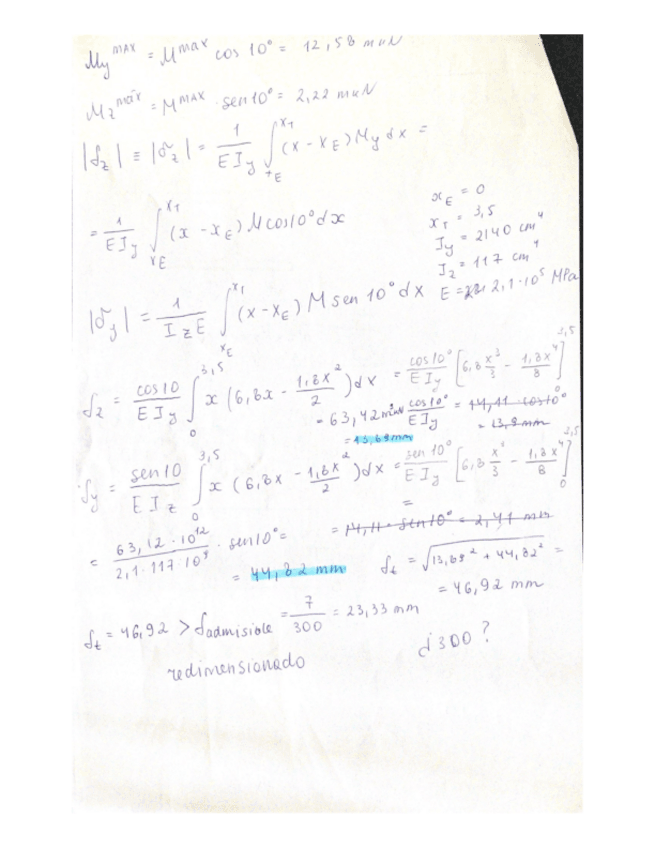 My^max = M^max cos 10° = 12,58 mkN
Mz^máx = M^max · sen 10° = 2,22 mkN
|δz| ≡ |σz| = 1/(E Iy) ∫_{xE}^{x1} (x - xE) My dx =
= 1/(E Iy) ∫_{xE}^{x1} (x - xE) M cos 10° dx
xE = 0
x1 = 3,5
Iy = 2140 cm⁴
Iz = 117 cm⁴
E = 2,1·10⁵ MPa
|σy| = 1/(Iz E) ∫_{xE}^{x1} (x - xE) M sen 10° dx
δz = cos 10/(E Iy) ∫_0^{3,5} x (6,8x - 1,8x²/2) dx = cos 10°/(E Iy) [6,8 x³/3 - 1,8x⁴/8]_0^{3,5}
= 63,42 cos 10°/(E Iy) = 14,11 · cos 10°
= 13,9 mm
= 13,69 mm
δy = sen 10/(E Iz) ∫_0^{3,5} x (6,8x - 1,8x²/2) dx = sen 10°/(E Iz) [6,8 x³/3 - 1,8x⁴/8]_0^{3,5}
=
= 63,12 · 10¹²/(2,1 · 117 · 10⁹) · sen 10° =
= 14,11 · sen 10° = 2,41 mm
= 44,82 mm
δt = √(13,69² + 44,82²) =
= 46,92 mm
δt = 46,92 > δadmisible = 7/300 = 23,33 mm
¿300?
redimensionado